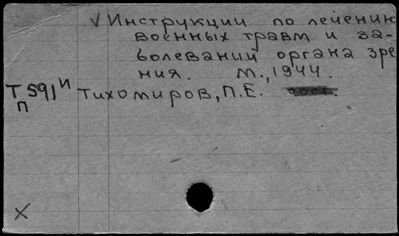 √ Инструкции по лечению
военных травм и за-
болеваний органа зре
ния. М., 1944.
Т591и Тихомиров, П.Е.
П
X